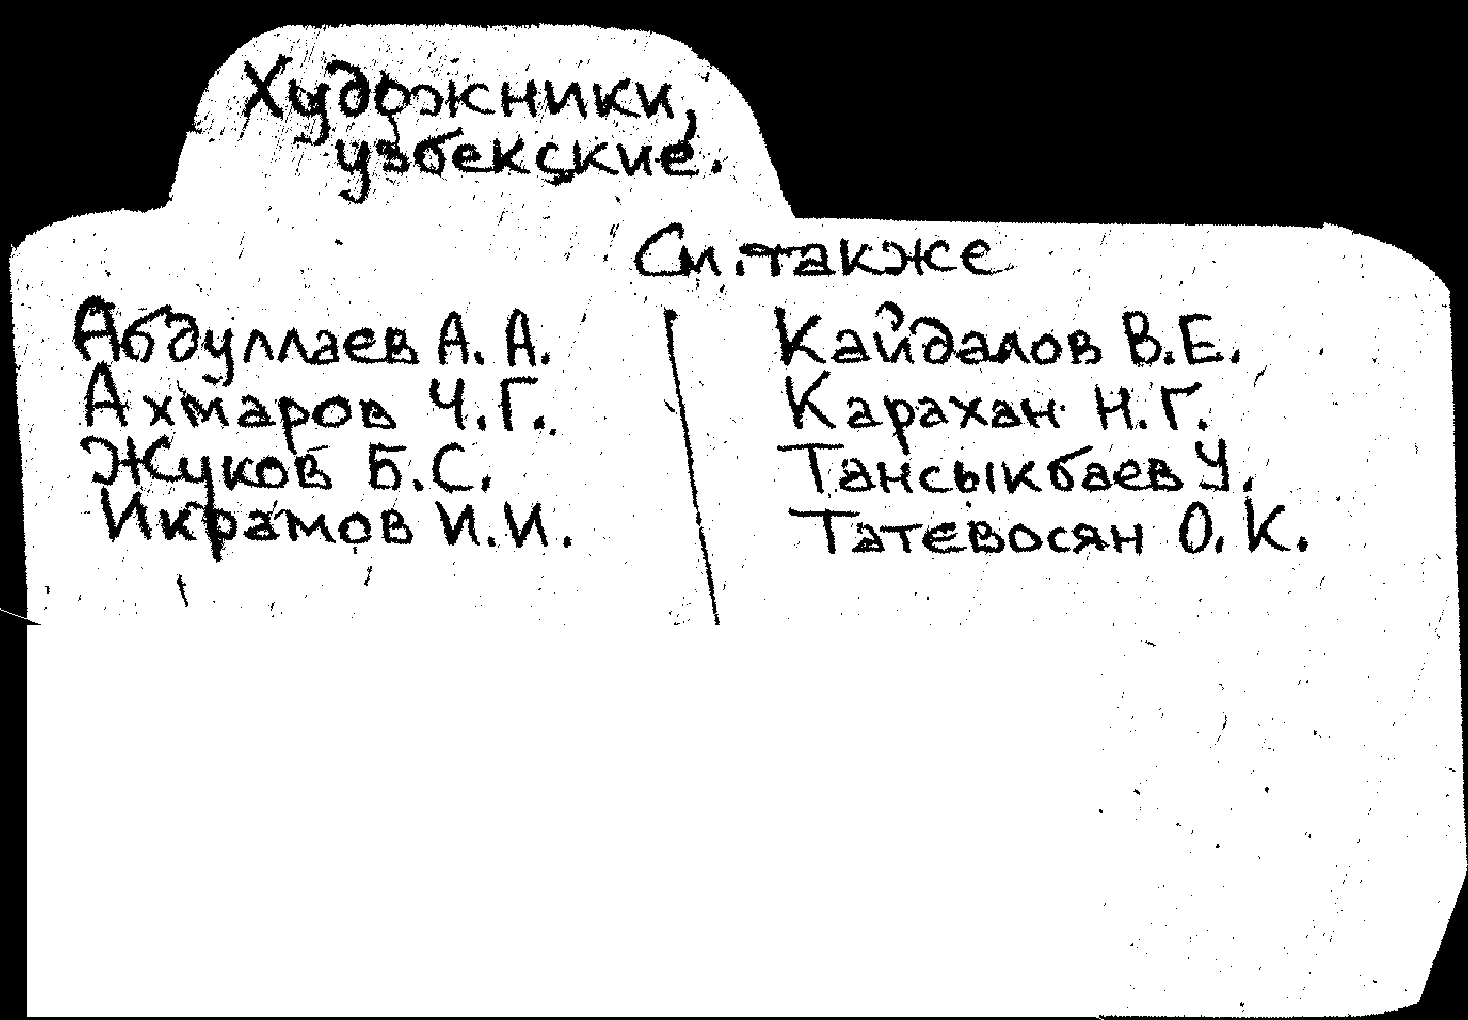 Художники,
узбекские.
См. также
Абдуллаев А. А.
Ахмаров Ч. Г.
Жуков Б. С.
Икрамов И. И.
Кайдалов В. Е.
Карахан Н. Г.
Тансыкбаев У.
Татевосян О. К.